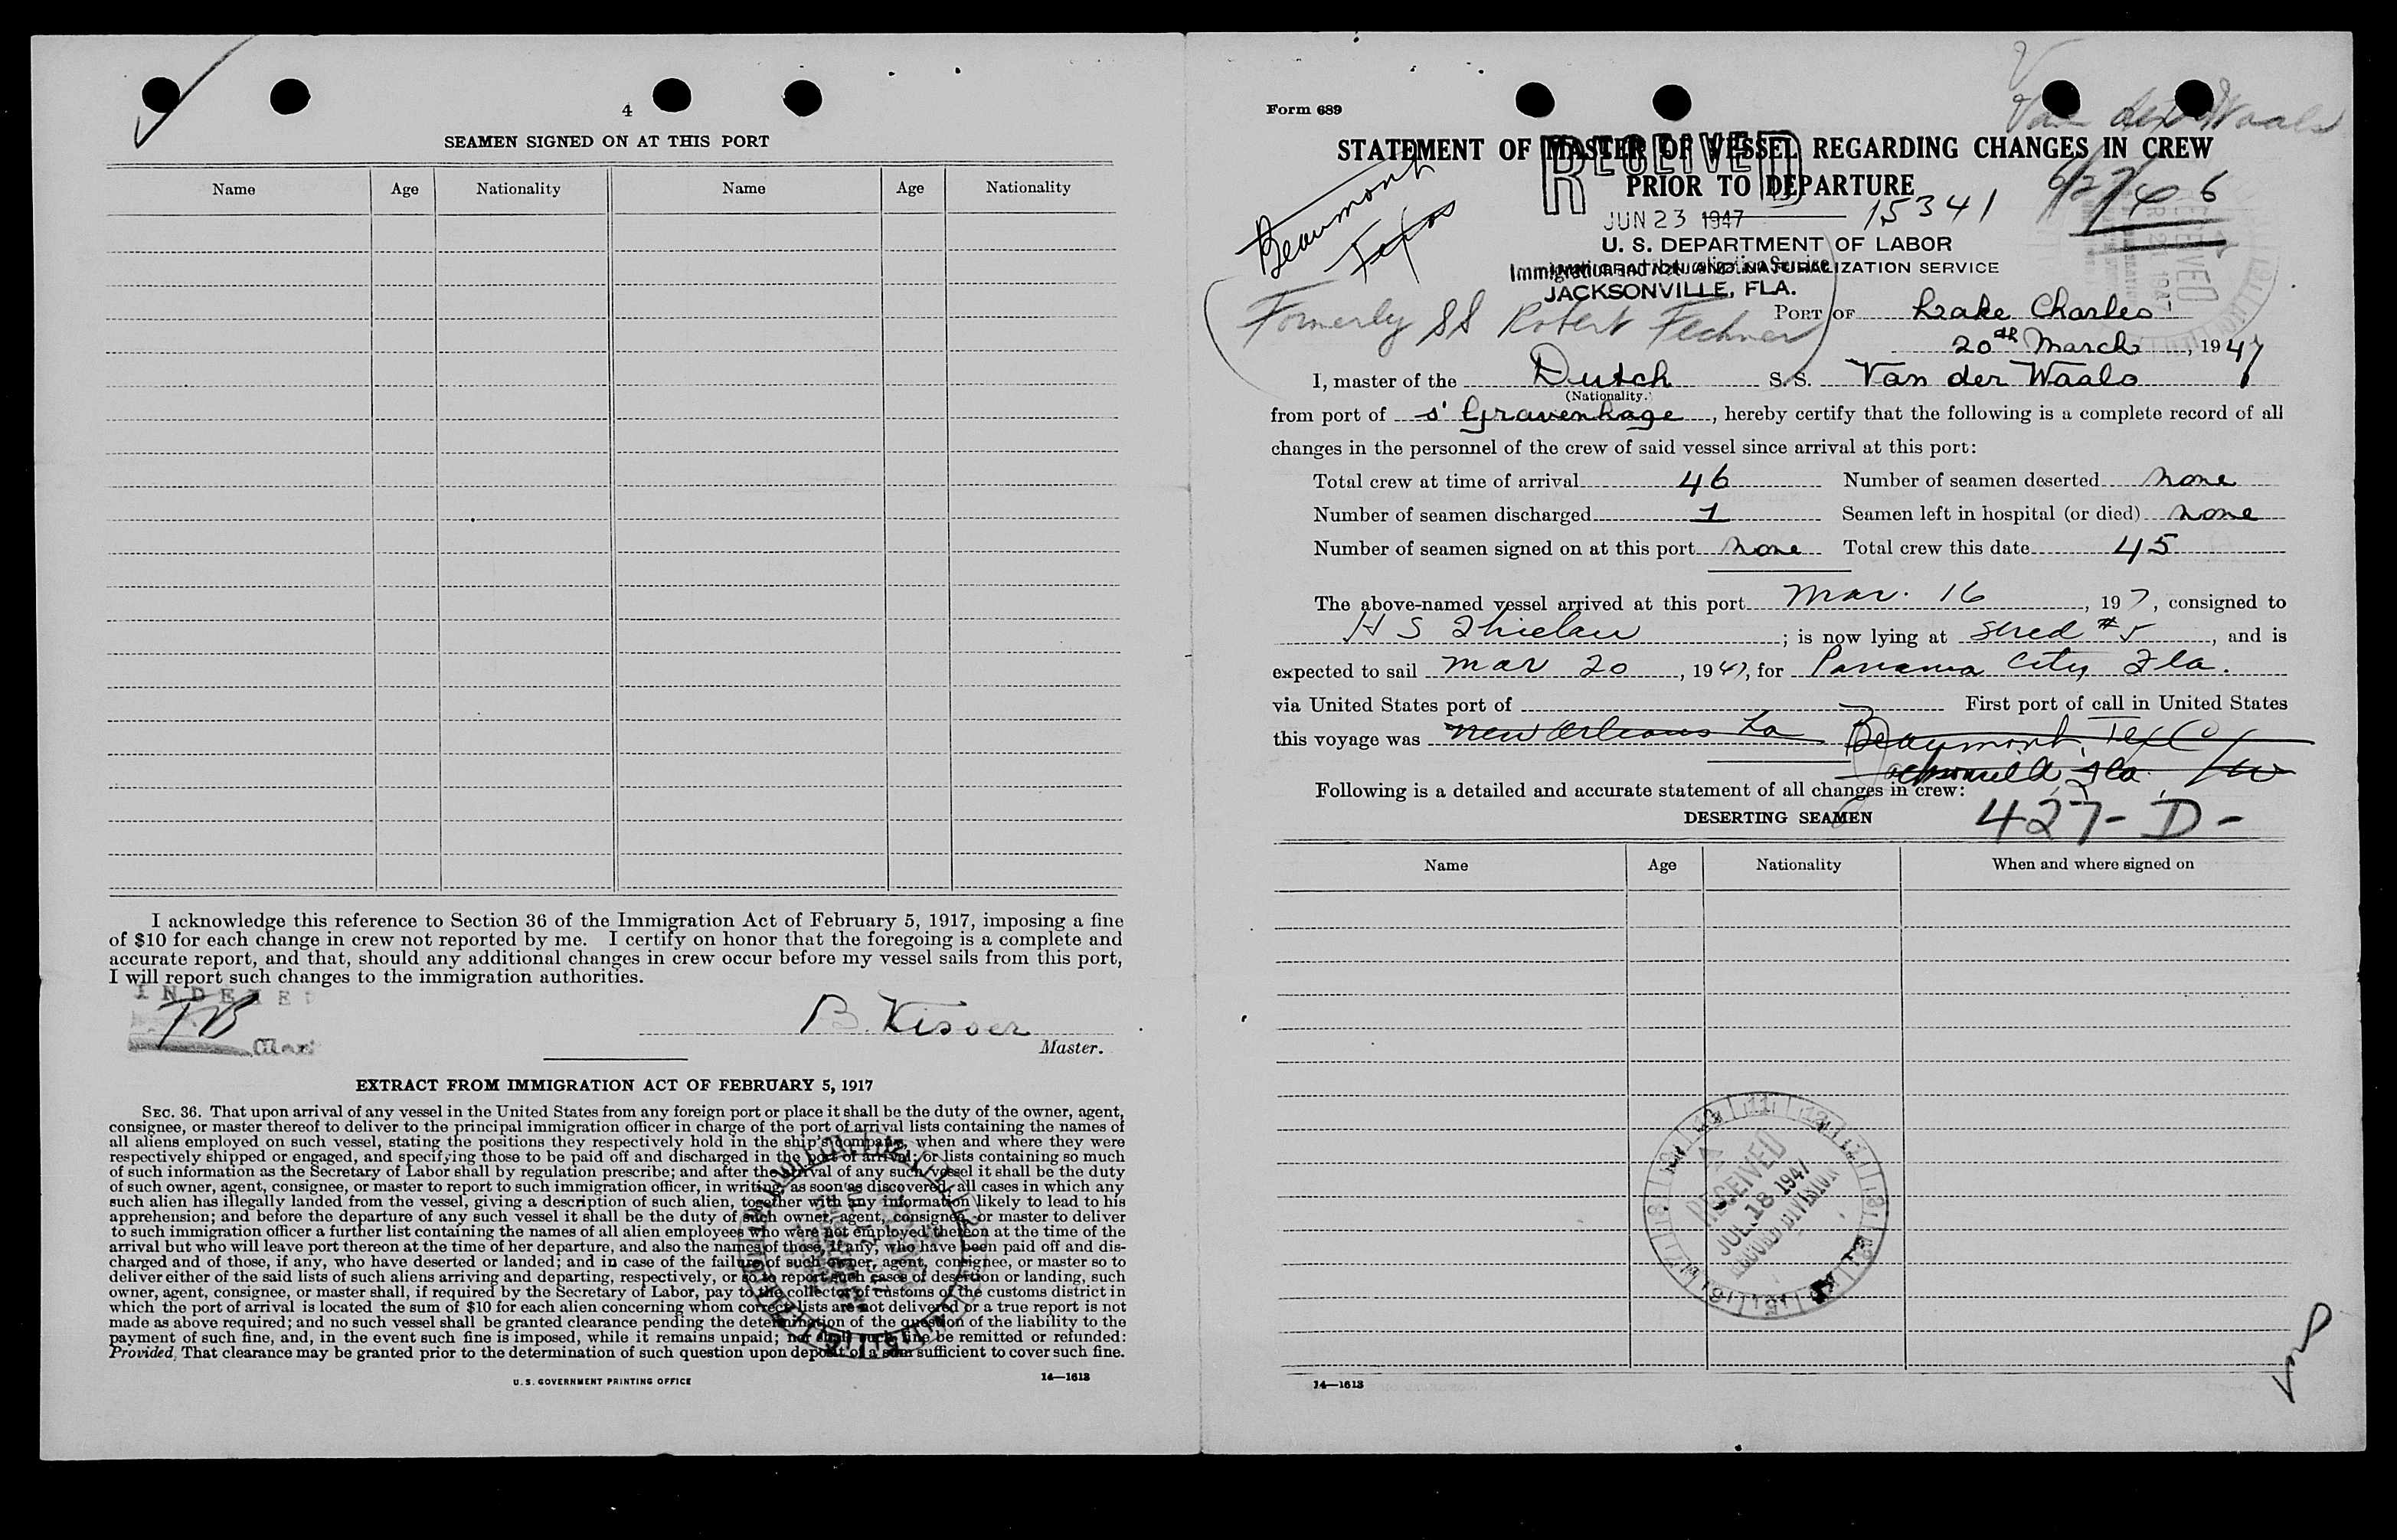 4
SEAMEN SIGNED ON AT THIS PORT
Name Age Nationality Name Age Nationality
I acknowledge this reference to Section 36 of the Immigration Act of February 5, 1917, imposing a fine
of $10 for each change in crew not reported by me. I certify on honor that the foregoing is a complete and
accurate report, and that, should any additional changes in crew occur before my vessel sails from this port,
I will report such changes to the immigration authorities.
INDEXED
TB
B. Kisser
Master.
EXTRACT FROM IMMIGRATION ACT OF FEBRUARY 5, 1917
SEC. 36. That upon arrival of any vessel in the United States from any foreign port or place it shall be the duty of the owner, agent,
consignee, or master thereof to deliver to the principal immigration officer in charge of the port of arrival lists containing the names of
all aliens employed on such vessel, stating the positions they respectively hold in the ship's company, when and where they were
respectively shipped or engaged, and specifying those to be paid off and discharged in the port of arrival; or lists containing so much
of such information as the Secretary of Labor shall by regulation prescribe; and after the arrival of any such vessel it shall be the duty
of such owner, agent, consignee, or master to report to such immigration officer, in writing, as soon as discovered, all cases in which any
such alien has illegally landed from the vessel, giving a description of such alien, together with any information likely to lead to his
apprehension; and before the departure of any such vessel it shall be the duty of such owner, agent, consignee, or master to deliver
to such immigration officer a further list containing the names of all alien employees who were not employed thereon at the time of the
arrival but who will leave port thereon at the time of her departure, and also the names of those, if any, who have been paid off and dis-
charged and of those, if any, who have deserted or landed; and in case of the failure of such owner, agent, consignee, or master so to
deliver either of the said lists of such aliens arriving and departing, respectively, or so to report such cases of desertion or landing, such
owner, agent, consignee, or master shall, if required by the Secretary of Labor, pay to the collector of customs of the customs district in
which the port of arrival is located the sum of $10 for each alien concerning whom correct lists are not delivered or a true report is not
made as above required; and no such vessel shall be granted clearance pending the determination of the question of the liability to the
payment of such fine, and, in the event such fine is imposed, while it remains unpaid; nor shall such fine be remitted or refunded:
Provided, That clearance may be granted prior to the determination of such question upon deposit of a sum sufficient to cover such fine.
U. S. GOVERNMENT PRINTING OFFICE 14—1613
Form 689
Van der Waals
STATEMENT OF MASTER OF VESSEL REGARDING CHANGES IN CREW
PRIOR TO DEPARTURE
RECEIVED
JUN 23 1947
15341
6/27/46
Beaumont
Texas
U. S. DEPARTMENT OF LABOR
IMMIGRATION AND NATURALIZATION SERVICE
Immigration and Naturalization Service
JACKSONVILLE, FLA.
Formerly SS Robert Fechner
PORT OF Lake Charles
20th March, 1947
I, master of the Dutch S. S. Van der Waals
(Nationality.)
from port of s' Gravenhage, hereby certify that the following is a complete record of all
changes in the personnel of the crew of said vessel since arrival at this port:
Total crew at time of arrival 46 Number of seamen deserted none
Number of seamen discharged 1 Seamen left in hospital (or died) none
Number of seamen signed on at this port none Total crew this date 45
The above-named vessel arrived at this port Mar. 16, 197, consigned to
H S Thielan; is now lying at Shed #5, and is
expected to sail Mar 20, 1947, for Panama City Fla.
via United States port of First port of call in United States
this voyage was New Orleans La Beaumont, Tex
Jacksonville, Fla.
Following is a detailed and accurate statement of all changes in crew:
DESERTING SEAMEN
427-D-
Name Age Nationality When and where signed on
RECEIVED
JUL 18 1947
RECORD DIVISION
14—1613